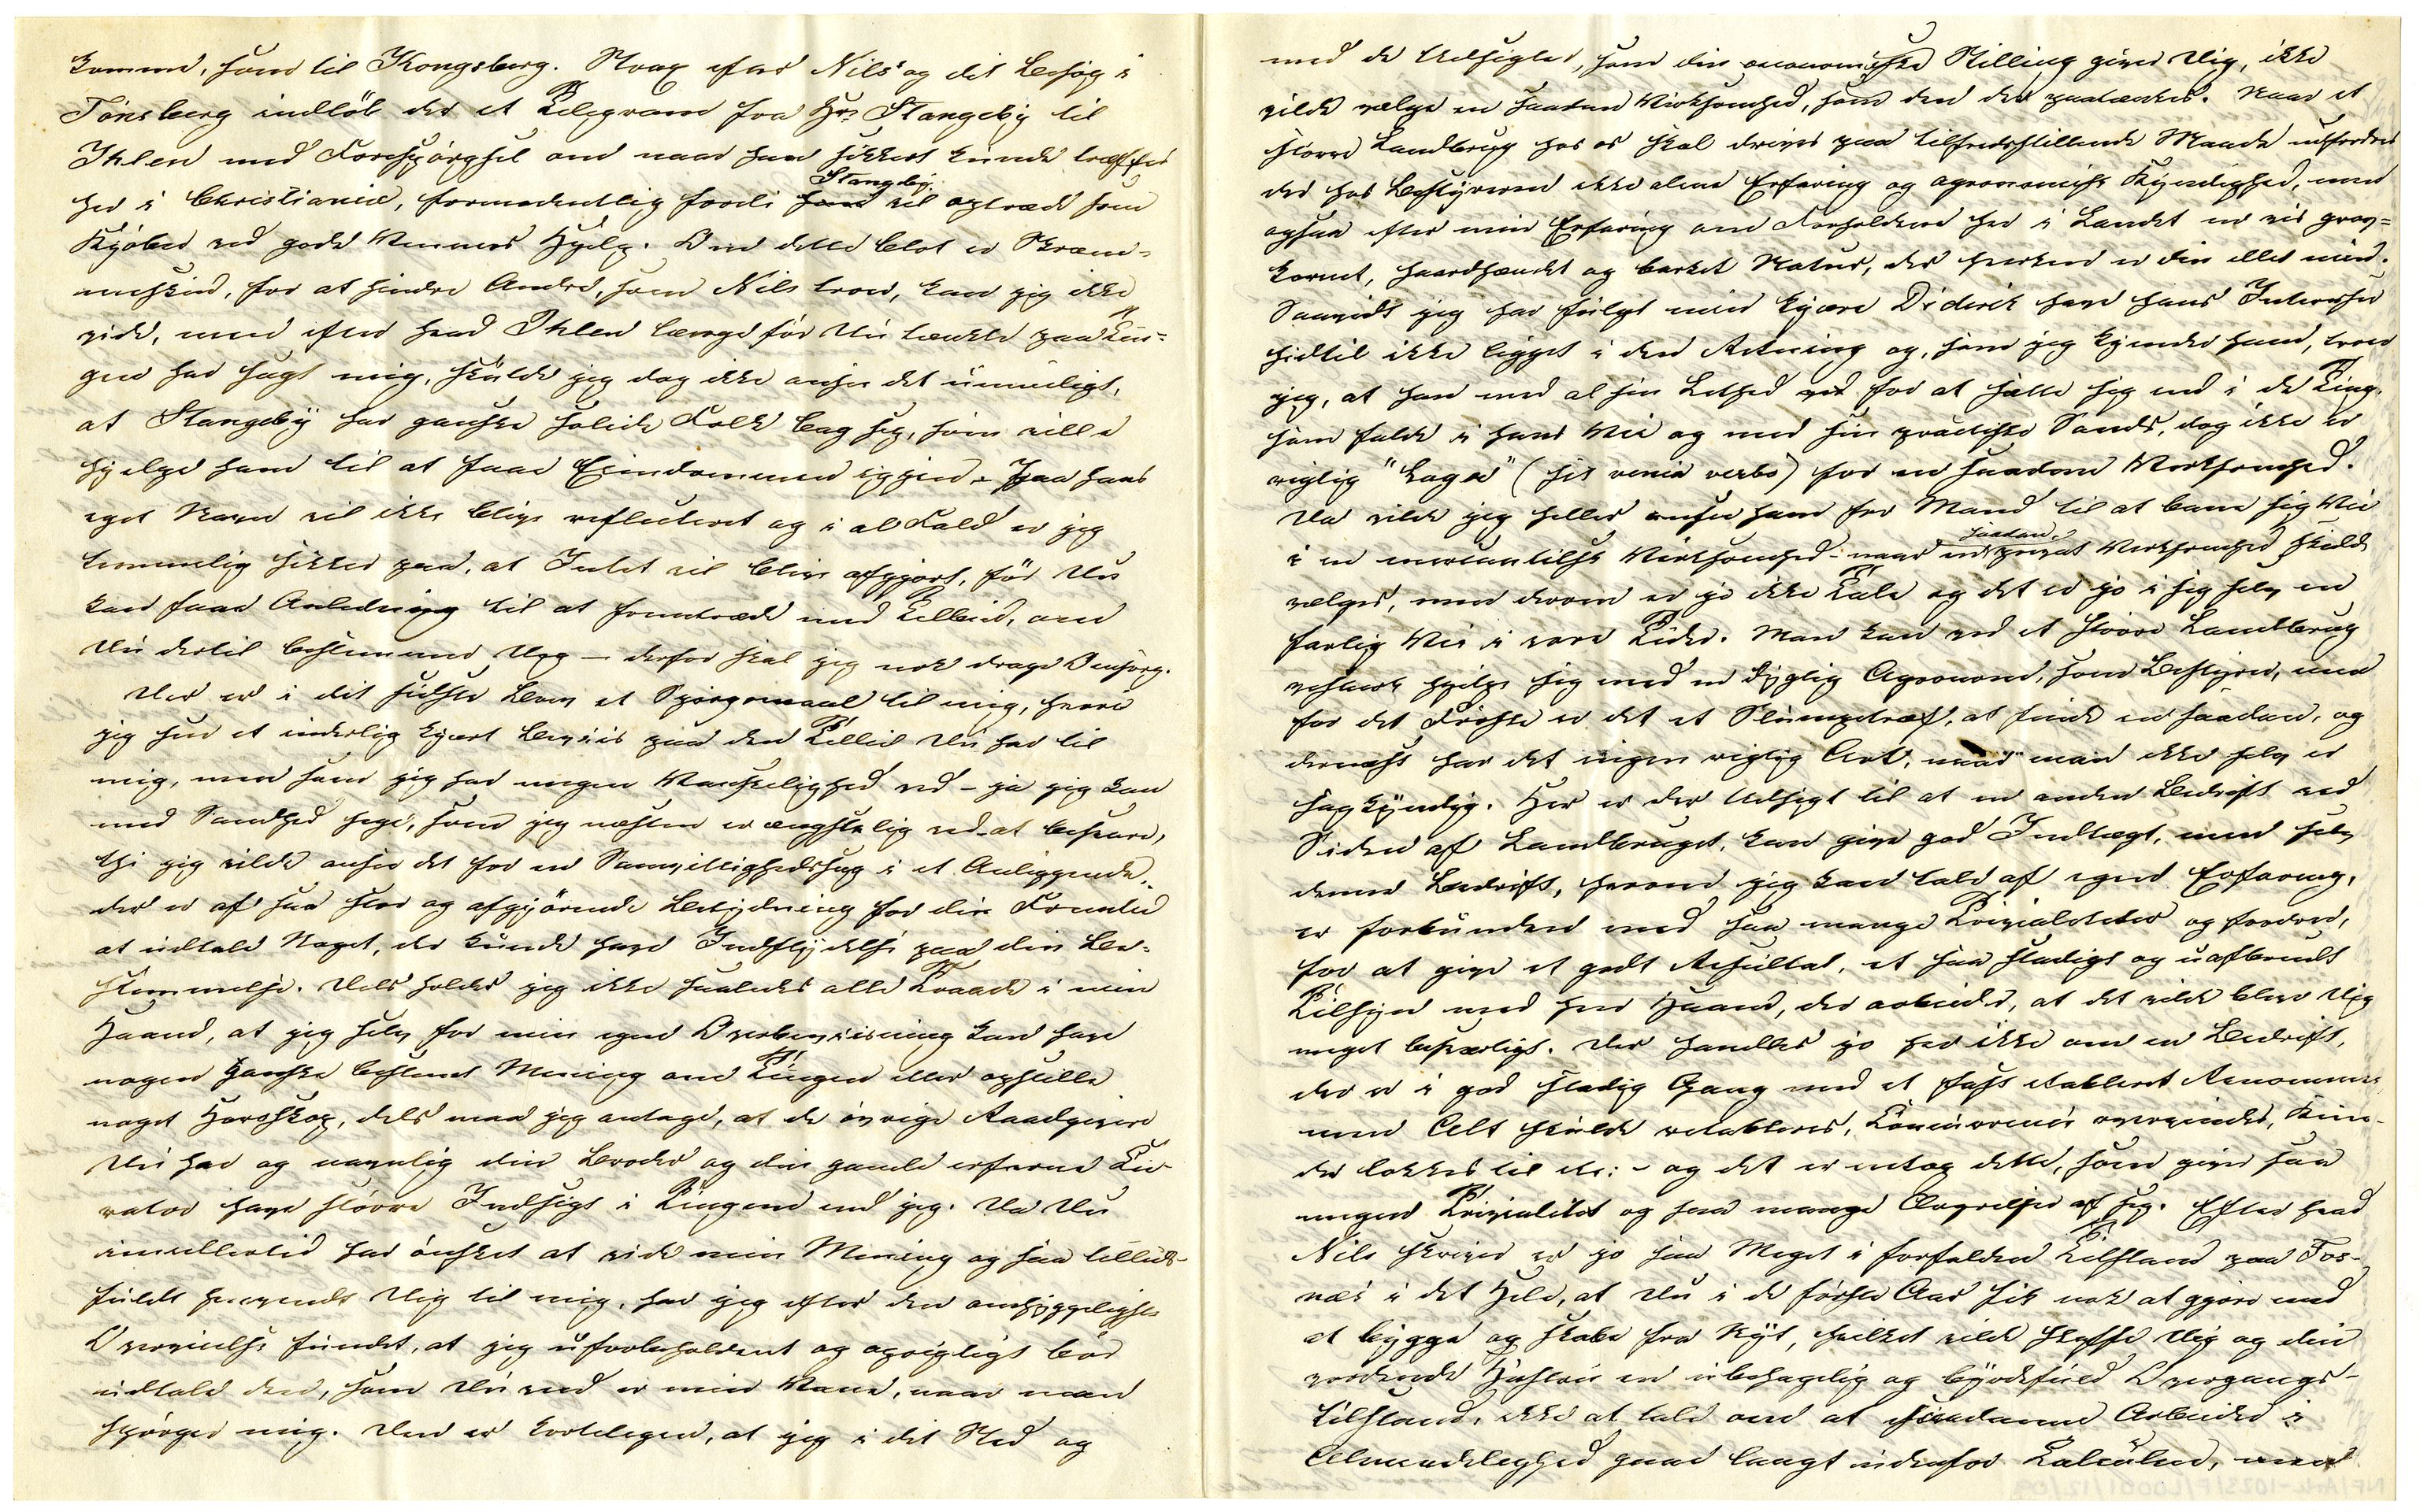 komme, som til Kongsberg. Strax efter Nils' og dit Besøg i
Tønsberg indløb der et Telegram fra Hr. Stangeby til
Ihlen med Forespørgsel om naar han sikkert kunde træffes
her i Christiania, formodentlig fordi Stangeby vil optræde som
Kjøber ved gode Venners Hjelp. Om dette blot er Skræm-
meskud, for at hindre Andre, som Nils troer, kan jeg ikke
vide, men efter hvad Ihlen længe før Du tænkte paa Tin-
gen har sagt mig, skulde jeg dog ikke ansee det umuligt,
at Stangeby har ganske solide Folk bag sig, som ville
hjelpe ham til at faae Eiendommen igjen. - Paa hans
eget Navn vil ikke blive reflecteret og i al Fald er jeg
temmelig sikker paa, at Intet vil blive afgjort, før Du
kan faae Anledning til at fremtræde med Tilbud, om
Du dertil bestemmer Dig — derfor skal jeg nok drage Omsorg.
Der er i dit sidste Brev et Spørgsmaal til mig, hvori
jeg seer et inderlig kjært Beviis paa den Tillid Du har til
mig, men som jeg har megen Vanskelighed ved - ja jeg kan
med Sandhed sige, som jeg næsten er ængstelig ved at besvare,
thi jeg vilde ansee det for en Samvittighedssag i et Anliggende,
der er af saa stor og afgjørende Betydning for din Fremtid
at udtale Noget, der kunde have Indflydelse paa din Be-
stemmelse. Dels holder jeg ikke saaledes alle Traade i min
Haand, at jeg selv for min egen Overbeviisning kan have
nogen ganske bestemt Mening om Tingen eller opstille
noget Horoskop, dels maa jeg antage, at de øvrige Raadgivere
Du har og navnlig din Broder og din gamle erfarne Cu-
rator have større Indsigt i Tingene end jeg. Da Du
imidlertid har ønsket at vide min Mening og saa tillids-
fuldt henvendt Dig til mig, har jeg efter den omhyggeligste
Overveielse fundet, at jeg uforbeholdent og oprigtigt bør
udtale den, som Du veed er min Vane, naar man
spørger mig. Den er korteligen, at jeg i dit Sted og
med de Udsigter, som din oeconomiske Stilling giver Dig, ikke
vilde vælge en saadan Virksomhed, som den der paatænkes. Naar et
større Landbrug hos os skal drives paa tilfredsstillende Maade udfordres
der hos Bestyreren ikke alene Erfaring og agronomisk Kyndighed, men
ogsaa efter min Erfaring om Forholdene her i Landet en vis grov-
kornet, haardhændet og barket Natur, der hverken er din eller min.
Saavidt jeg har fulgt min kjære Diderik have hans Interesser
hidtil ikke ligget i den Retning og, som jeg kjender ham, troer
jeg, at han med al sin Lethed for at sætte sig ind i de Ting,
som falde i hans Vei og med sin practiske Sands, dog ikke er
rigtig "Laget" (sit venia verbo) for en saadan Virksomhed.
Da vilde jeg heller ansee ham for Mand til at bane sig Vei
i en mercantilsk Virksomhed - naar saadan privat Virksomhed skulde
vælges, men derom er jo ikke Tale og det er jo i sig selv en
farlig Vei i vore Tider. Man kan ved et større Landbrug
vistnok hjelpe sig med en dygtig Agronom, som Bestyrer, men
for det Første er det et Slumpetræf, at finde en saadan, og
dernæst har det ingen rigtig Art, naar man ikke selv er
sagkyndig. Her er der Udsigt til at en anden Bedrift ved
Siden af Landbruget, kan give god Indtægt, men selv
denne Bedrift, hvorom jeg kan tale af egen Erfaring,
er forbunden med saa mange Trivialiteter og fordrer,
for at give et godt Resultat, et saa stadigt og uafbrudt
Tilsyn med hver Haand, der arbeider, at det vilde blive Dig
meget besværligt. Der handles jo her ikke om en Bedrift,
der er i god stadig Gang med et fast etableret Renommée
men Alt skulde retableres, Concurrencen overvindes, Kun-
der lokkes til etc: - og det er netop dette, som giver saa
megen Trivialitet og saa mange Ærgrelser af sig. Efter hvad
Nils skriver er jo saa Meget i forfalden Tilstand paa Fos-
næs i det Hele, at Du i de første Aar fik nok at gjøre med
at bygge og skabe fra Nyt, hvilket vilde skaffe Dig og din
vordende Hustru en ubehagelig og byrdefuld Overgangs-
tilstand, ikke at tale om at saadanne Arbeider i
Almindelighed gaae langt udenfor Calculen, men